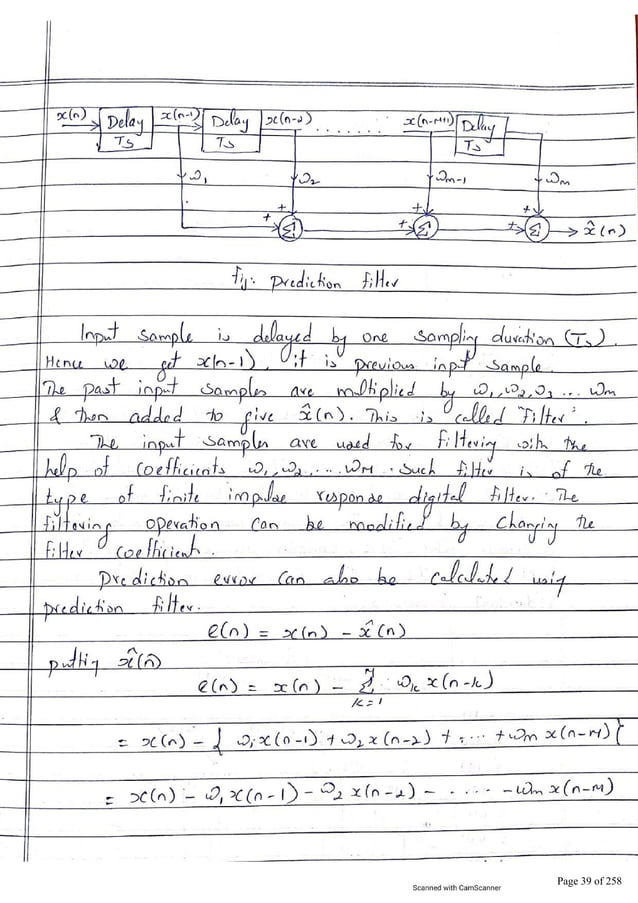 x(n) Delay Ts x(n-1) Delay Ts x(n-2) ....... x(n-M+1) Delay Ts
ω1 ω2 ωm-1 ωm
+ + +
+ Σ + Σ + Σ → x̂(n)
fig: Prediction filter
Input sample is delayed by one sampling duration (Ts).
Hence we get x(n-1), it is previous input sample.
The past input samples are multiplied by ω1, ω2, ω3 ... ωm
& then added to give x̂(n). This is called "Filter".
The input samples are used for filtering with the
help of coefficients ω1, ω2, .... ωM. Such filter is of the
type of finite impulse response digital filter. The
filtering operation can be modified by changing the
filter coefficient.
Prediction error can also be calculated using
prediction filter.
e(n) = x(n) - x̂(n)
putting x̂(n)
e(n) = x(n) - M Σ k=1 ωk x(n-k)
= x(n) - { ω1x(n-1) + ω2x(n-2) + .... + ωm x(n-M)}
= x(n) - ω1x(n-1) - ω2x(n-2) - ..... -ωm x(n-M)
Page 39 of 258
Scanned with CamScanner